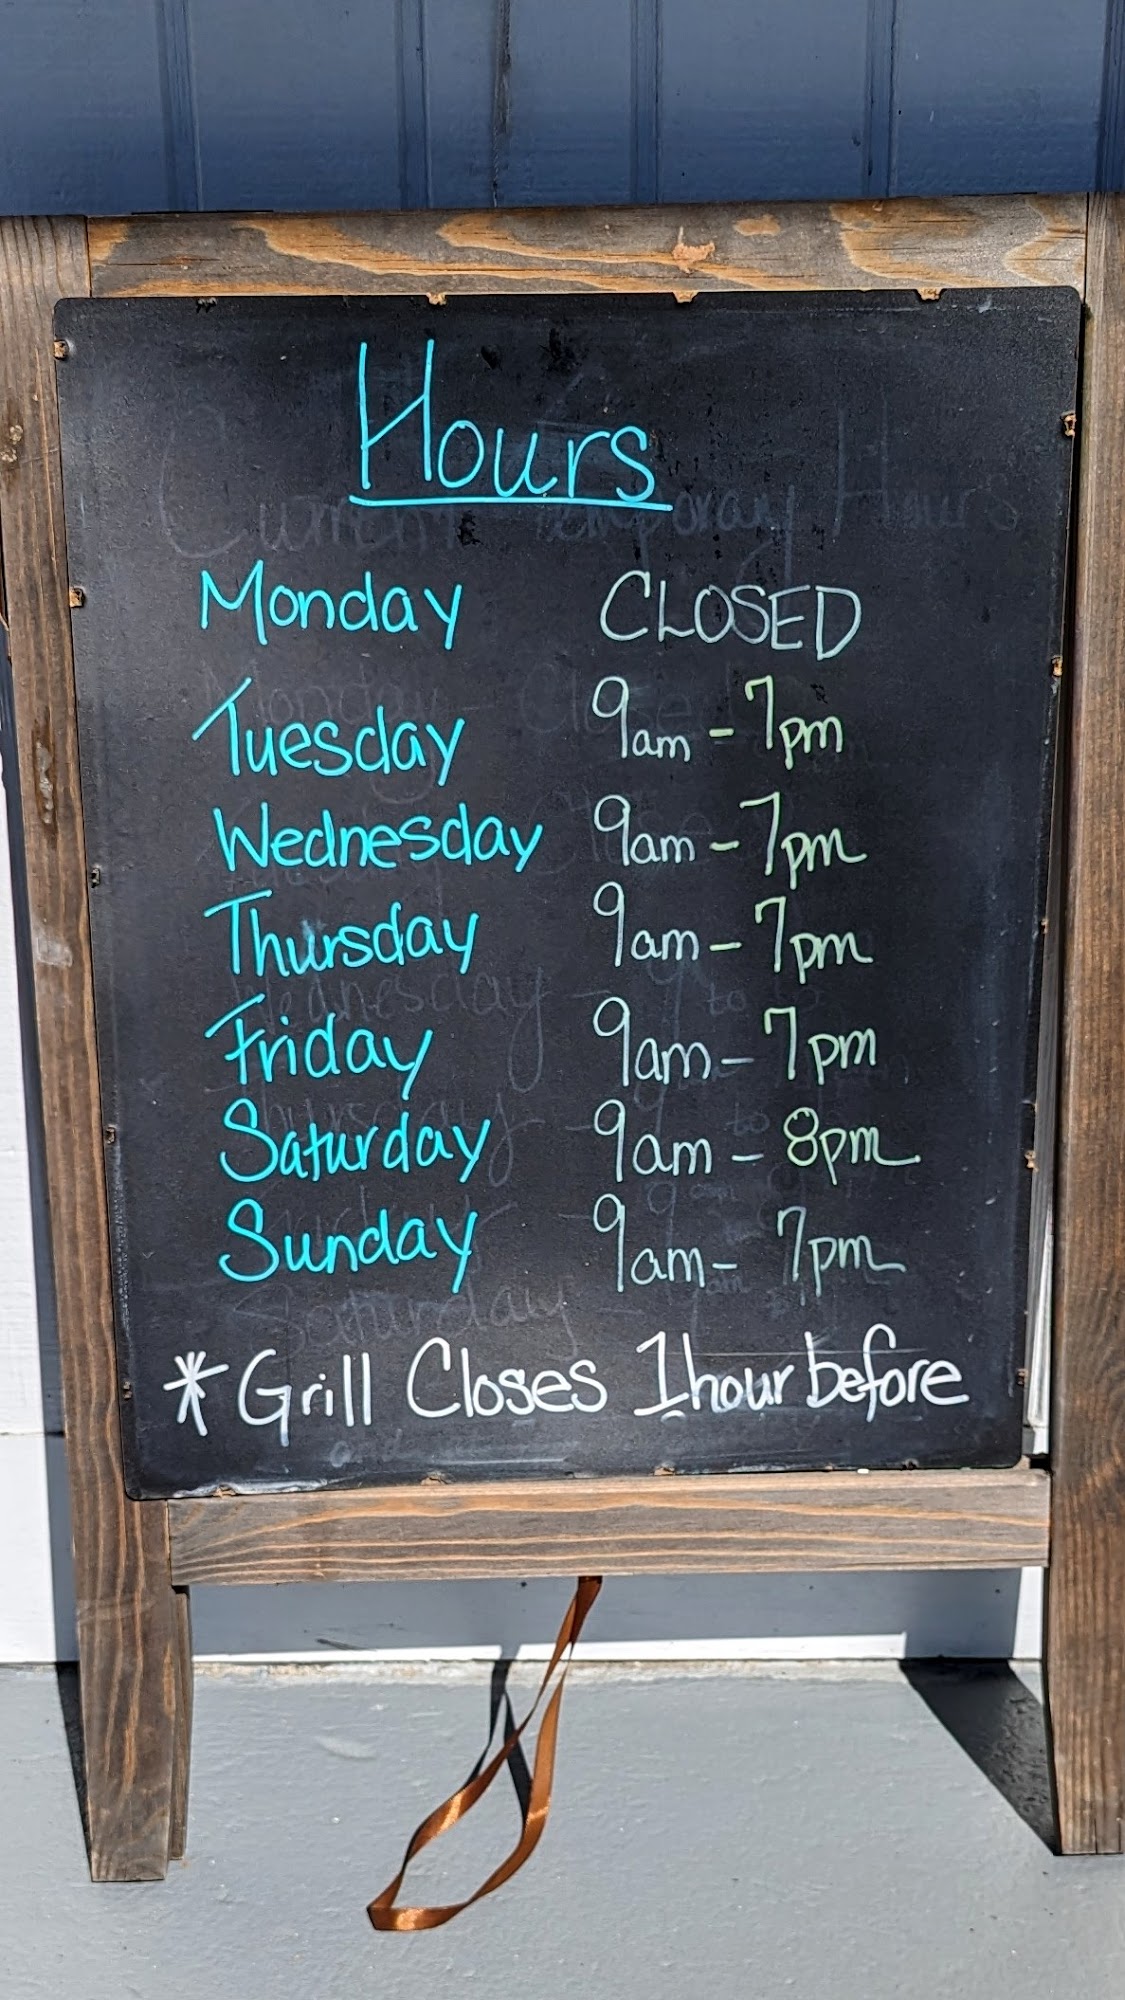 Hours
Monday CLOSED
Tuesday 9am - 7pm
Wednesday 9am - 7pm
Thursday 9am - 7pm
Friday 9am - 7pm
Saturday 9am - 8pm
Sunday 9am - 7pm
*Grill Closes 1hour before